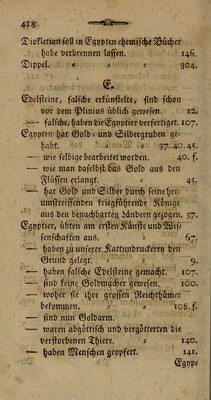 418
Diokletian soll in Egypten chemische Bücher
habe verbrennen lassen. 146.
Dippel. 304.
E.
Edelsteine, falsche erkünstelte, sind schon
vor dem Plinius üblich gewesen. 12.
— falsche, haben die Egyptier verfertiget. 107.
Egypten hat Gold- und Silbergruben ge-
habt. 37. 40. 45.
— wie selbige bearbeitet worden. 40. f.
— wie man daselbst das Gold aus den
Flüssen erlangt. 45.
— hat Gold und Silber durch seine her-
umstreiffenden kriegführende Könige
aus den benachbarten Ländern gezogen. 37.
Egyptier, übten am ersten Künste und Wis-
senschaften aus. 67.
— haben zu unserer Kattundruckerey den
Grund gelegt. 9.
— haben falsche Edelsteine gemacht. 107.
— sind keine Goldmacher gewesen. 100.
— woher sie ihre grossen Reichthümer
bekommen. 108. f.
— sind nun Goldarm.
— waren abgöttisch und vergötterten die
verstorbenen Thiere. 140.
— haben Menschen geopfert. 141.
Egyp-